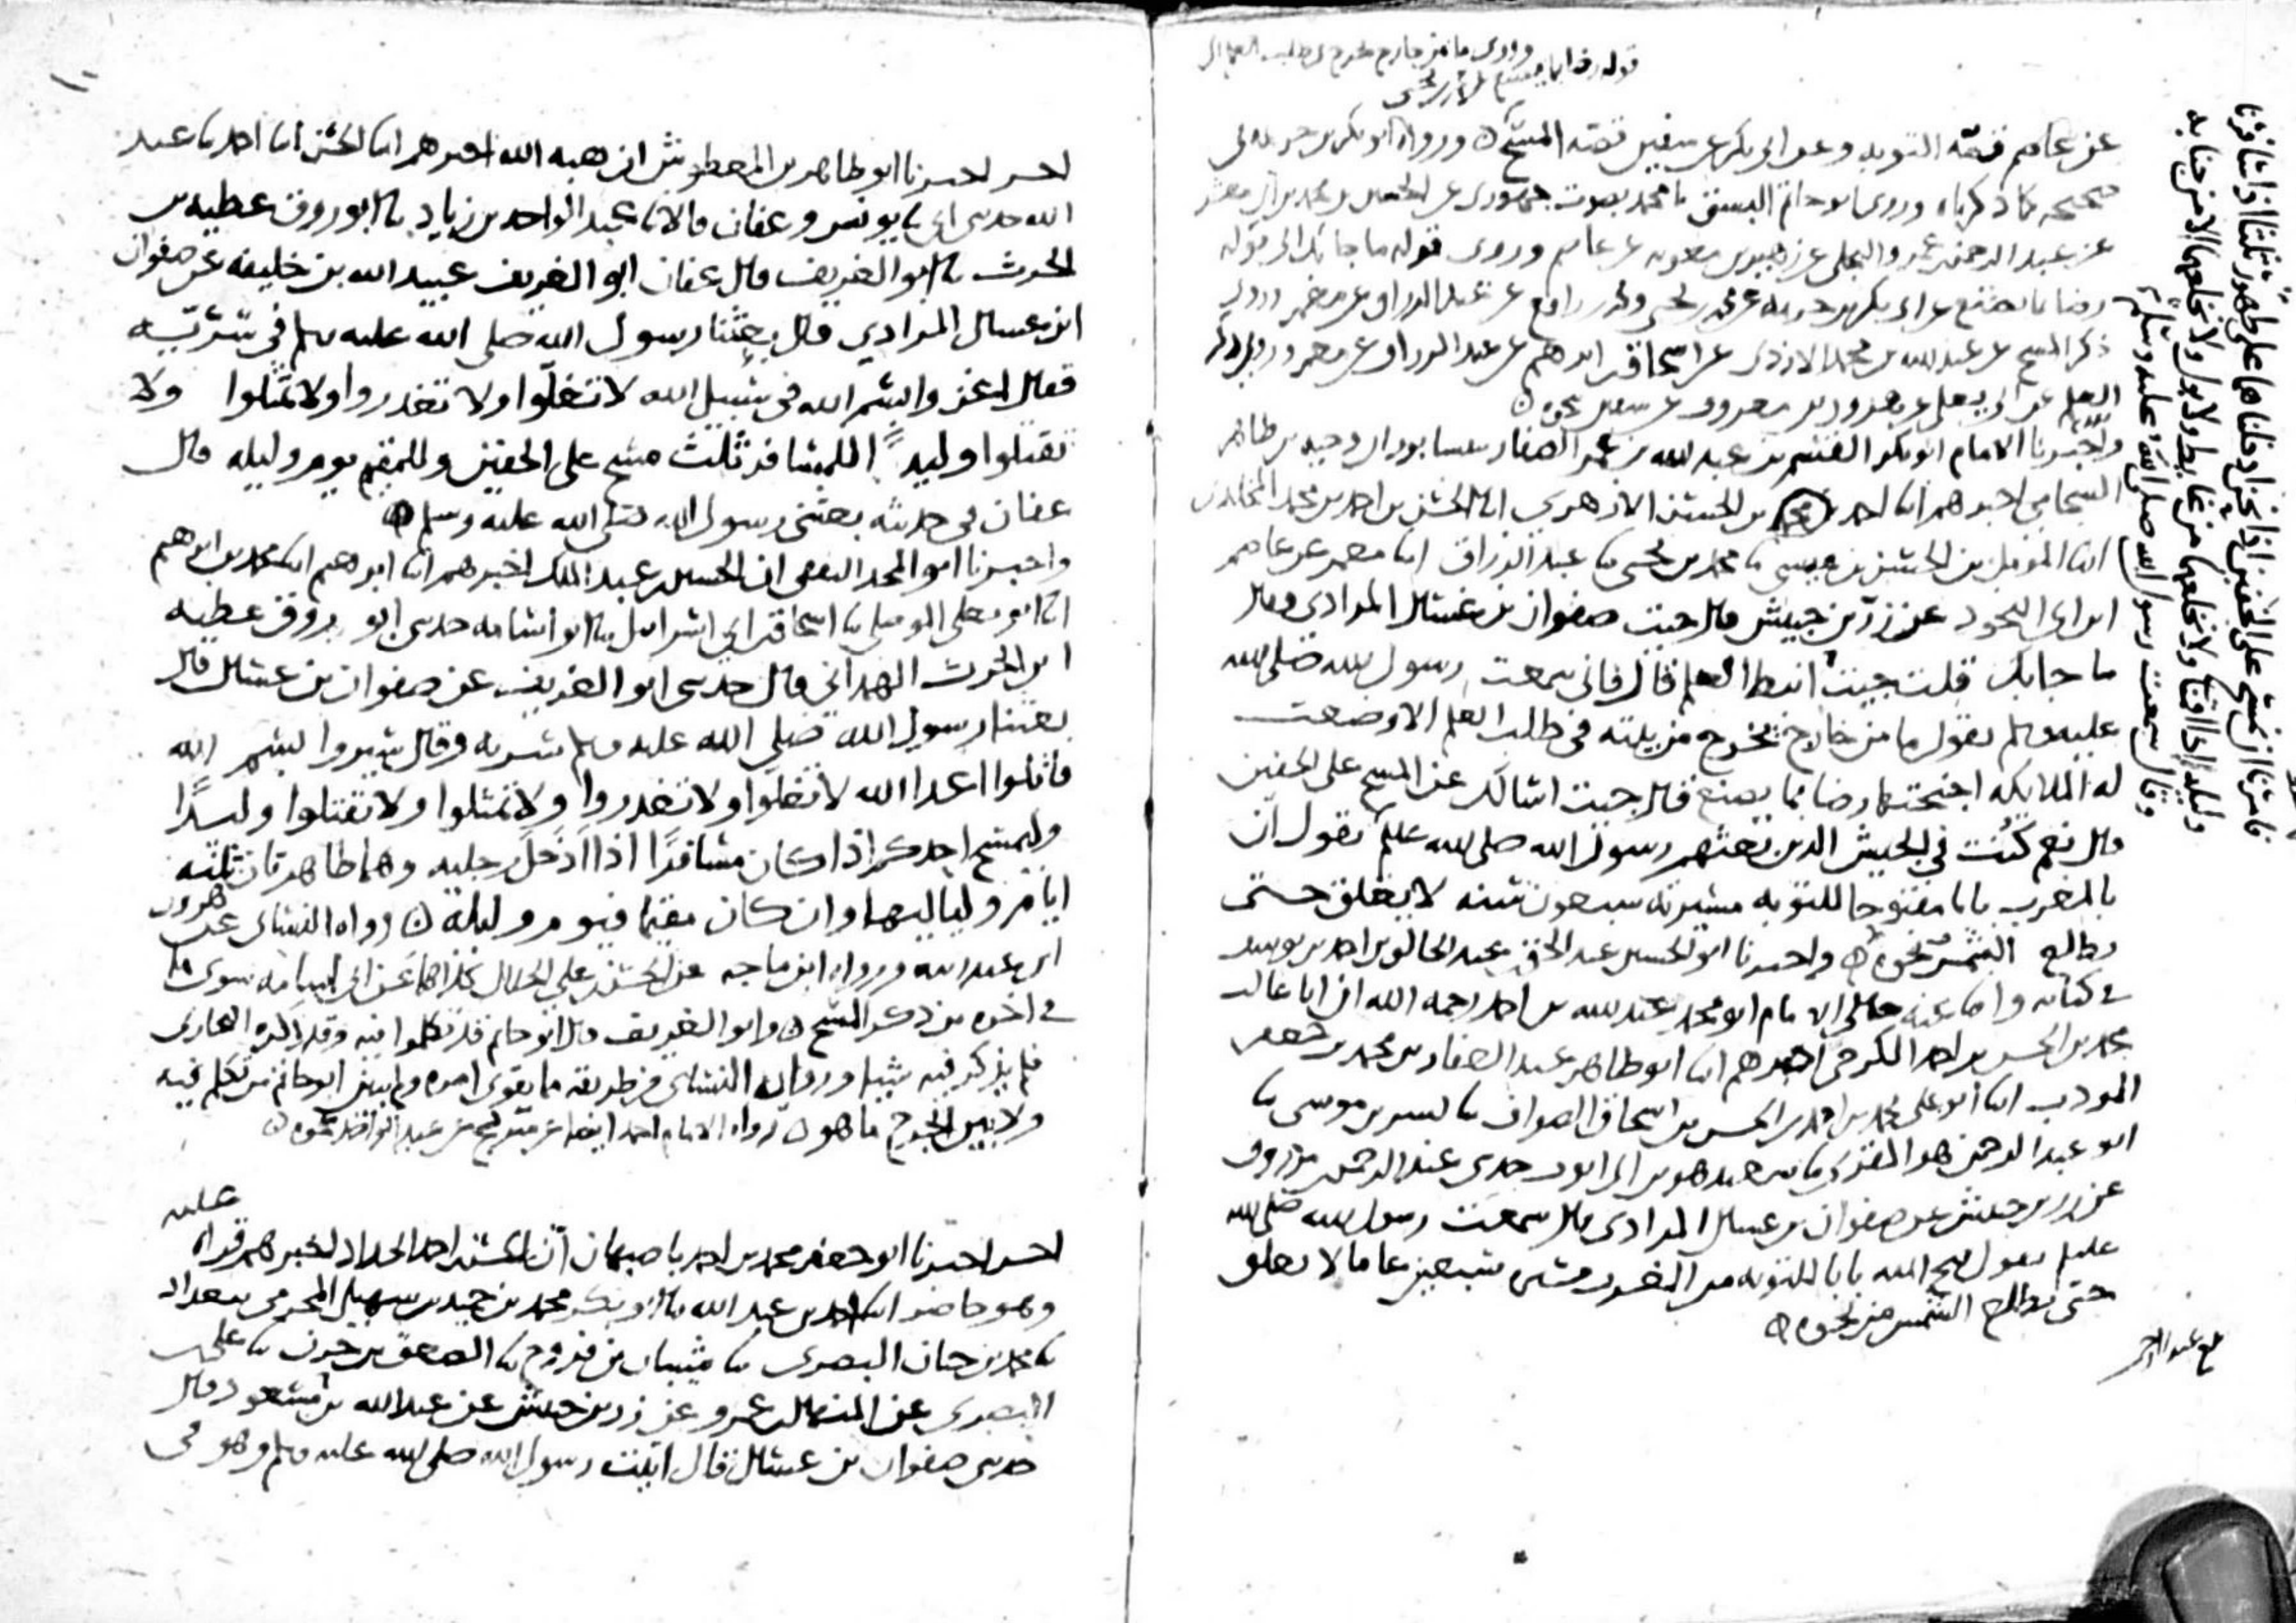 قوله رضا بما يصنع وروى ما من خارج يخرج في طلب العلم الى
عن عاصم قصة التوبه وعن ابي بكر عن سفين قصه المسح ورواه ابو بكر بن خزيمه في
صحيحه كما ذكرناه وروى ابو حاتم البستي محمد بصوت جهوري عن الحسين بن محمد بن ابي معشر
عن عبد الرحمن بن عمرو البجلي عن زهير بن معويه عن عاصم وروى قوله ما جا بك الى قوله
رضا بما يصنع عن ابي بكر بن خزيمه عن محمد بن يحيى ومحمد بن رافع عن عبد الرزاق عن معمر وروى
ذكر المسح عن عبد الله بن محمد الازدي عن اسحاق بن ابرهيم عن عبد الرزاق عن معمر وروى ذكر
العلم عن ابي يعلى عن هرون بن معروف عن سفين نحوه
واخبرنا الامام ابو بكر القسم بن عبد الله بن عمر الصفار بنيسابور ان وجيه بن طاهر
الشحامي اخبرهم انا احمد بن محمد بن الحسن الازهري انا الحسن بن احمد بن محمد المخلدي
انا المؤمل بن الحسن بن عيسى نا محمد بن يحيى نا عبد الرزاق انا معمر عن عاصم
ابن ابي النجود عن زر بن حبيش قال جيت صفوان بن عسال المرادي وقال
ما جا بك قلت جيت انبط العلم قال فاني سمعت رسول الله صلى الله
عليه وسلم يقول ما من خارج يخرج من بيته في طلب العلم الا وضعت
له الملايكه اجنحتها رضا بما يصنع قال جيت اسالك عن المسح على الخفين
قال نعم كنت في الجيش الذين بعثهم رسول الله صلى الله عليه وسلم يقول ان
بالمغرب بابا مفتوحا للتوبه مسيرته سبعون سنه لا يغلق حتى
تطلع الشمس نحوه واخبرنا ابو الحسين عبد الحق بن عبد الخالق بن احمد بن يوسف
في كتابه واخبرنا عنه خالي الامام ابو محمد عبد الله بن احمد رحمه الله ان ابا غالب
محمد بن الحسن بن احمد الكرخي اخبرهم انا ابو طاهر عبد الغفار بن محمد بن جعفر
المودب انا ابو علي محمد بن احمد بن الحسن بن اسحاق الصواف نا بشر بن موسى نا
ابو عبد الرحمن هو المقرى نا سعيد هو بن ابي ايوب حدثني عبد الرحمن بن مرزوق
عن زر بن حبيش عن صفوان بن عسال المرادي قال سمعت رسول الله صلى الله
عليه وسلم يقول فتح الله بابا للتوبه من المغرب مسيرته سبعين عاما لا يغلق
حتى تطلع الشمس من نحوه
فامرنا ان نمسح على الخفين اذا نحن ادخلناهما على طهور ثلثا اذا سافرنا
وليله اذا اقمنا ولا نخلعهما من غايط ولا بول ولا نخلعهما الا من جنابه
وقال سمعت رسول الله صلى الله عليه وسلم
١٠
اخبرنا ابو طاهر بن المعطوش ان هبه الله اخبرهم انا الحسن انا احمد نا عبد
الله حدثني ابي نا يونس وعفان قالا نا عبد الواحد بن زياد نا ابو روق عطيه بن
الحرث نا ابو الغريف قال عفان ابو الغريف عبيد الله بن خليفه عن صفوان
ابن عسال المرادي قال بعثنا رسول الله صلى الله عليه وسلم في سريه
فقال اغزوا بسم الله في سبيل الله لا تغلوا ولا تغدروا ولا تمثلوا ولا
تقتلوا وليدا للمسافر ثلث مسح على الخفين وللمقيم يوم وليله قال
عفان في حديثه بعثني رسول الله صلى الله عليه وسلم
واخبرنا ابو المجد الثقفي ان الحسين بن عبد الملك اخبرهم انا ابرهيم انا محمد بن ابرهيم
انا ابو يعلى الموصلي نا اسحاق بن ابي اسرائيل نا ابو اسامه حدثني ابو روق عطيه
ابن الحرث الهمداني قال حدثني ابو الغريف عن صفوان بن عسال قال
بعثنا رسول الله صلى الله عليه وسلم سريه وقال سيروا بسم الله
قاتلوا اعدا الله لا تغلوا ولا تغدروا ولا تمثلوا ولا تقتلوا وليدا
وليمسح احدكم اذا كان مسافرا اذا ادخل رجليه وهما طاهرتان ثلثه
ايام ولياليها وان كان مقيما فيوم وليله رواه النسائي عن هرون
ابن عبد الله ورواه ابن ماجه عن الحسن بن علي الخلال كلاهما عن ابي اسامه سوى ما
في اخره من ذكر المسح وابو الغريف قال ابو حاتم قد تكلموا فيه وقد ذكره البخاري
فلم يذكر فيه شيا ورواه النسائي من طريقه ما يقوي امره ولم يبين ابو حاتم من تكلم فيه
ولا بين الجرح ما هو رواه الامام احمد ايضا عن سريج عن عبد الواحد نحوه
اخبرنا ابو جعفر محمد بن احمد باصبهان ان الحسن بن احمد الحداد اخبرهم قراه عليه
وهو حاضر انا احمد بن عبد الله نا ابو بكر محمد بن حميد بن سهيل المخرمي ببغداد
نا محمد بن حنان البصري نا شيبان بن فروخ نا الصعق بن حزن نا علي بن
البصري عن المنهال بن عمرو عن زر بن حبيش عن عبد الله بن مسعود قال
حدثني صفوان بن عسال قال اتيت رسول الله صلى الله عليه وسلم وهو في